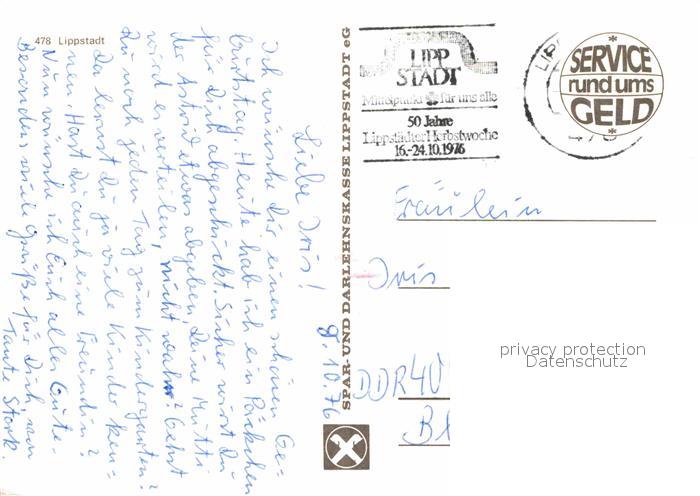 478 Lippstadt
Liebe Iris! 9.10.76
Ich wünsche dir einen schönen Ge-
burtstag. Heute hab ich ein Päckchen
für Dich abgeschickt. Sicher wirst du
der Astrid etwas abgeben, Deine Mutti
wird es verteilen, nicht wahr? Gehst
Du noch jeden Tag zum Kindergarten?
Da lernst Du ja viele Kinder ken-
nen. Hast Du auch eine Freundin?
Nun wünsche ich Euch alles Gute.
Besonders viele Grüße für Dich von
Tante Stork.
SPAR- UND DARLEHNSKASSE LIPPSTADT eG
LIPP
STADT
Mittelpunkt für uns alle
50 Jahre
Lippstädter Herbstwoche
16.-24.10.1976
LIP
SERVICE
rund ums
GELD
Fräulein
Iris
DDR 40
Bl
privacy protection
Datenschutz